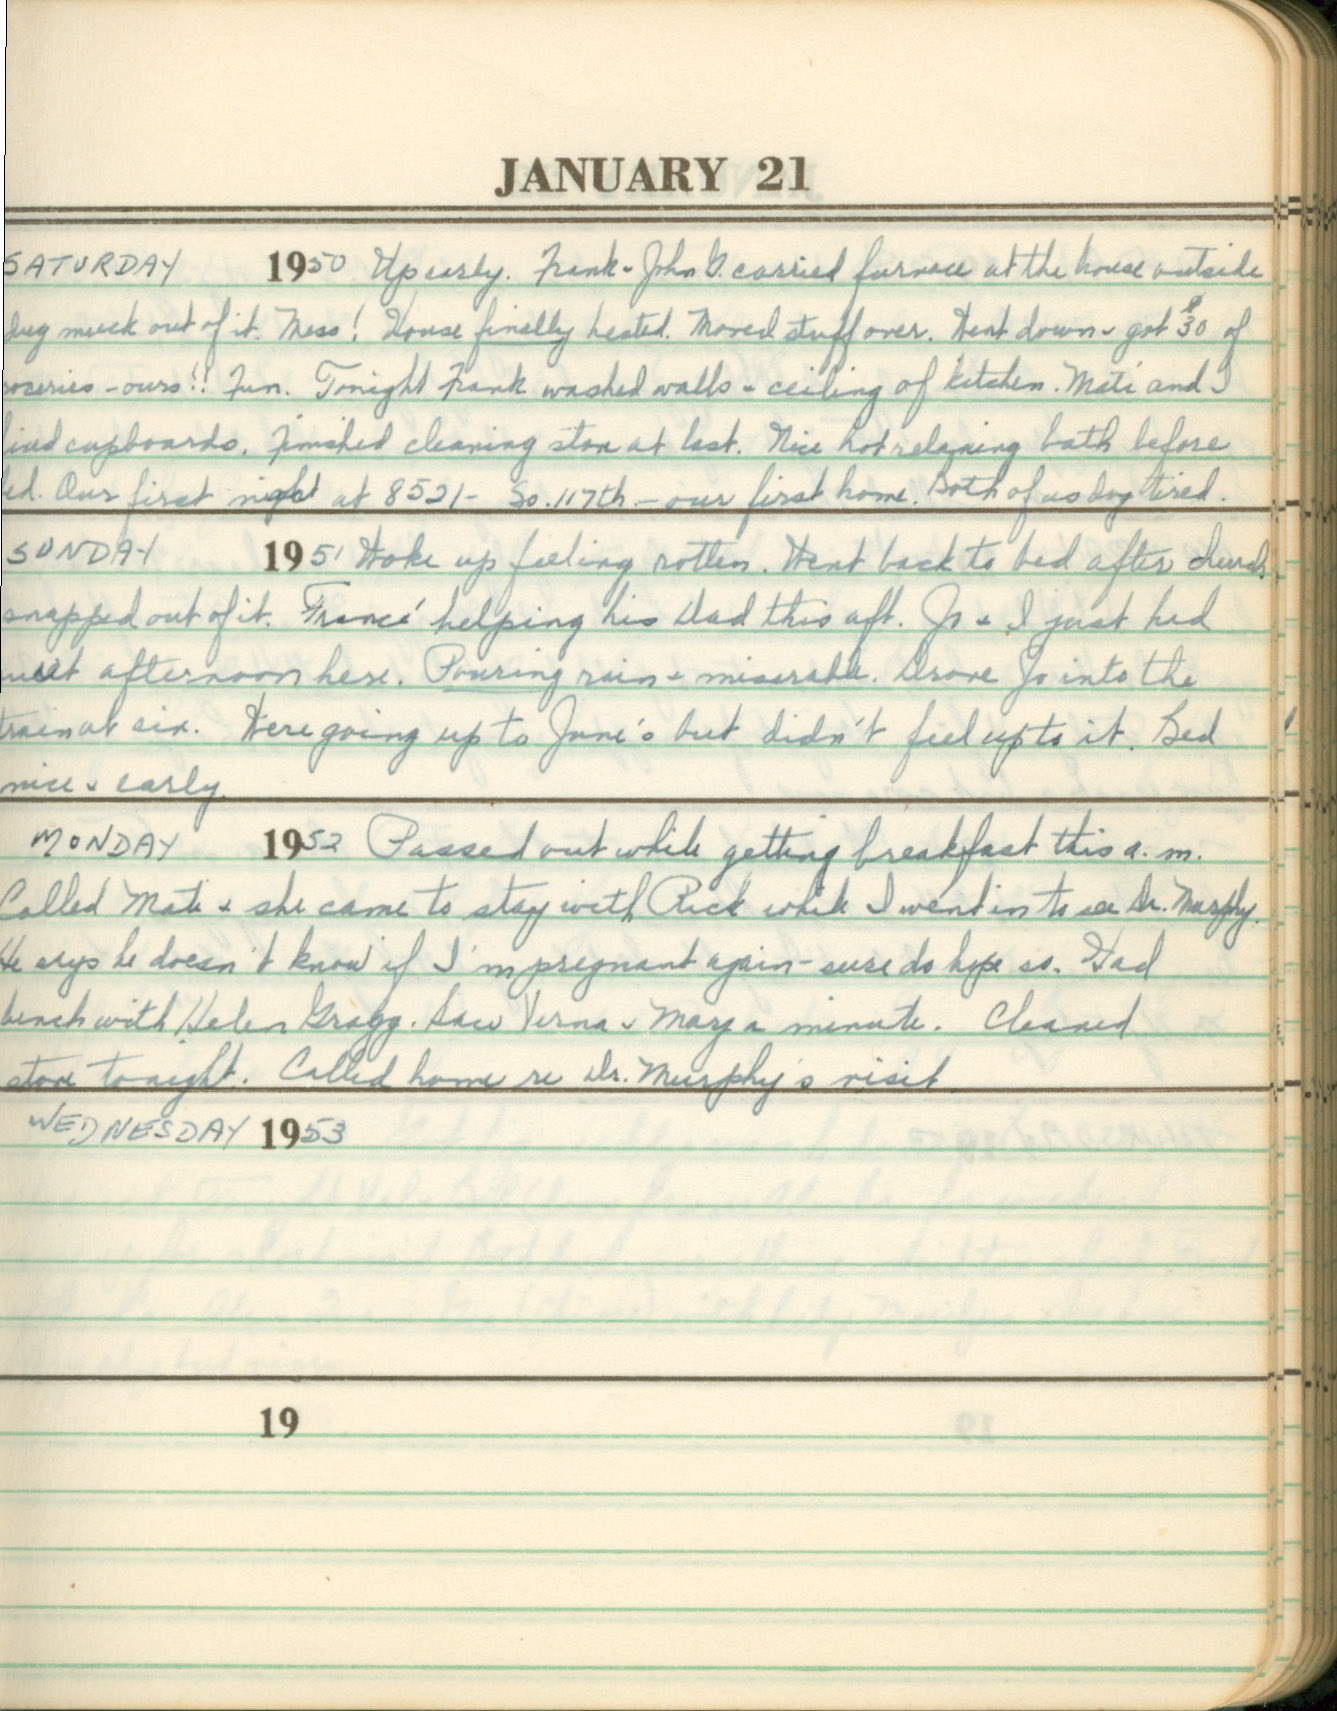 JANUARY 21
SATURDAY 1950 Up early. Frank & John G. carried furnace at the house outside
dug muck out of it. Mess! House finally heated. Moved stuff over. Went down & got $30 of
roceries - ours!! Fun. Tonight Frank washed walls & ceiling of kitchen. Mati and I
lined cupboards. Finished cleaning store at last. Nice hot relaxing bath before
ed. Our first night at 8521 - So. 117th - our first home. Both of us dog tired.
SUNDAY 1951 Woke up feeling rotten. Went back to bed after church
snapped out of it. Francé helping his Dad this aft. Jo & I just had
afternoon here. Pouring rain & miserable. Drove Jo into the
train at six. Were going up to June's but didn't feel up to it. Bed
nice & early.
MONDAY 1952 Passed out while getting breakfast this a.m.
Called Mati & she came to stay with Rick while I went in to see Dr. Murphy.
He says he doesn't know if I'm pregnant again - sure do hope so. Had
lunch with Helen Gragg. Saw Verna & Mary a minute. Cleaned
store tonight. Called home re Dr. Murphy's visit
WEDNESDAY 1953
19